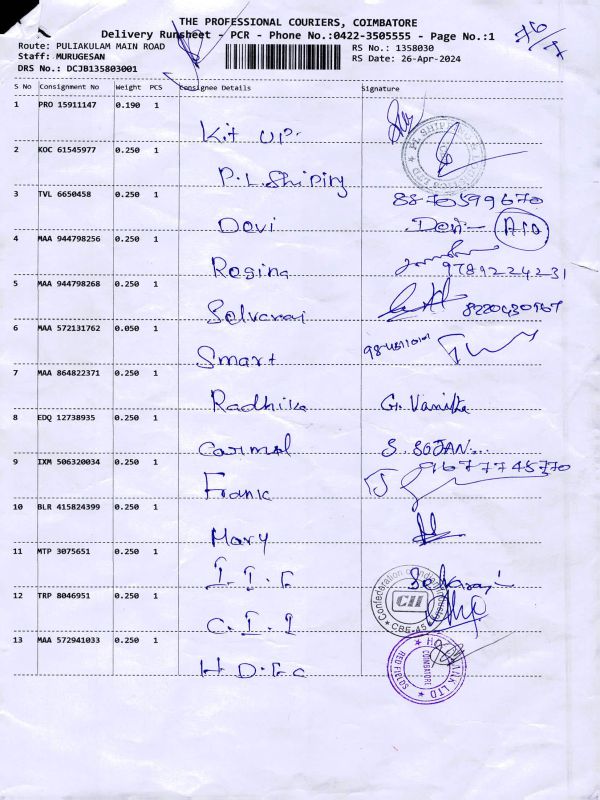 THE PROFESSIONAL COURIERS, COIMBATORE
Delivery Runsheet - PCR - Phone No.:0422-3505555 - Page No.:1
Route: PULIAKULAM MAIN ROAD RS No.: 1358030
Staff: MURUGESAN RS Date: 26-Apr-2024
DRS No.: DCJB135803001
S No Consignment No Weight PCS Consignee Details Signature
1 PRO 15911147 0.190 1
Kit UP.
2 KOC 61545977 0.250 1
P.L.Shiping
3 TVL 6650458 0.250 1 8870599670
Devi Devi
4 MAA 944798256 0.250 1
Rogina 9789224231
5 MAA 944798268 0.250 1
Selvaraj 8220430967
6 MAA 572131762 0.050 1
Smart
7 MAA 864822371 0.250 1
Radhika G. Vanitha
8 EDQ 12738935 0.250 1
Carmel S. SOJAN...
9 IXM 506320034 0.250 1 9677745770
Frank
10 BLR 415824399 0.250 1
Mary
11 MTP 3075651 0.250 1
I.I.F
12 TRP 8046951 0.250 1
CII
CBE-45
C.I.I
13 MAA 572941033 0.250 1
RED FIELDS
COIMBATORE
H.D.F.C